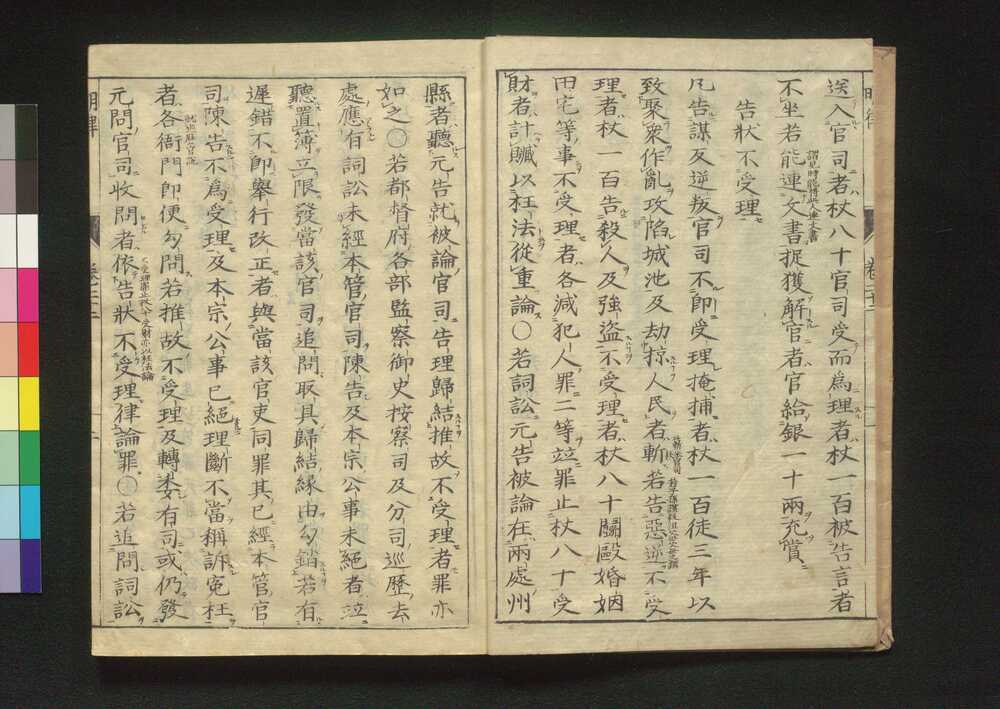 送入官司者杖八十官司受而爲理者杖一百被告言者
不坐若能連文書捉獲解官者官給銀一十兩充賞
告狀不受理
凡告謀反逆叛官司不即受理掩捕者杖一百徒三年以
致聚衆作亂攻陷城池及劫掠人民者斬若告惡逆不受
理者杖一百告殺人及強盜不受理者杖八十鬭毆婚姻
田宅等事不受理者各減犯人罪二等並罪止杖八十受
財者計贓以枉法從重論○若詞訟元告被論在兩處州
縣者聽元告就被論官司告理歸結推故不受理者罪亦
如之○若都督府各部監察御史按察司及分司巡歷去
處應有詞訟未經本管官司陳告及本宗公事未絕者並
聽置簿立限發當該官司追問取具歸結緣由勾銷若有
遲錯不即舉行改正者與當該官吏同罪其已經本管官
司陳告不爲受理及本宗公事已絕理斷不當稱訴冤枉
者各衙門即便勾問若推故不受理及轉委有司或仍發
元問官司收問者依告狀不受理律論罪○若追問詞訟